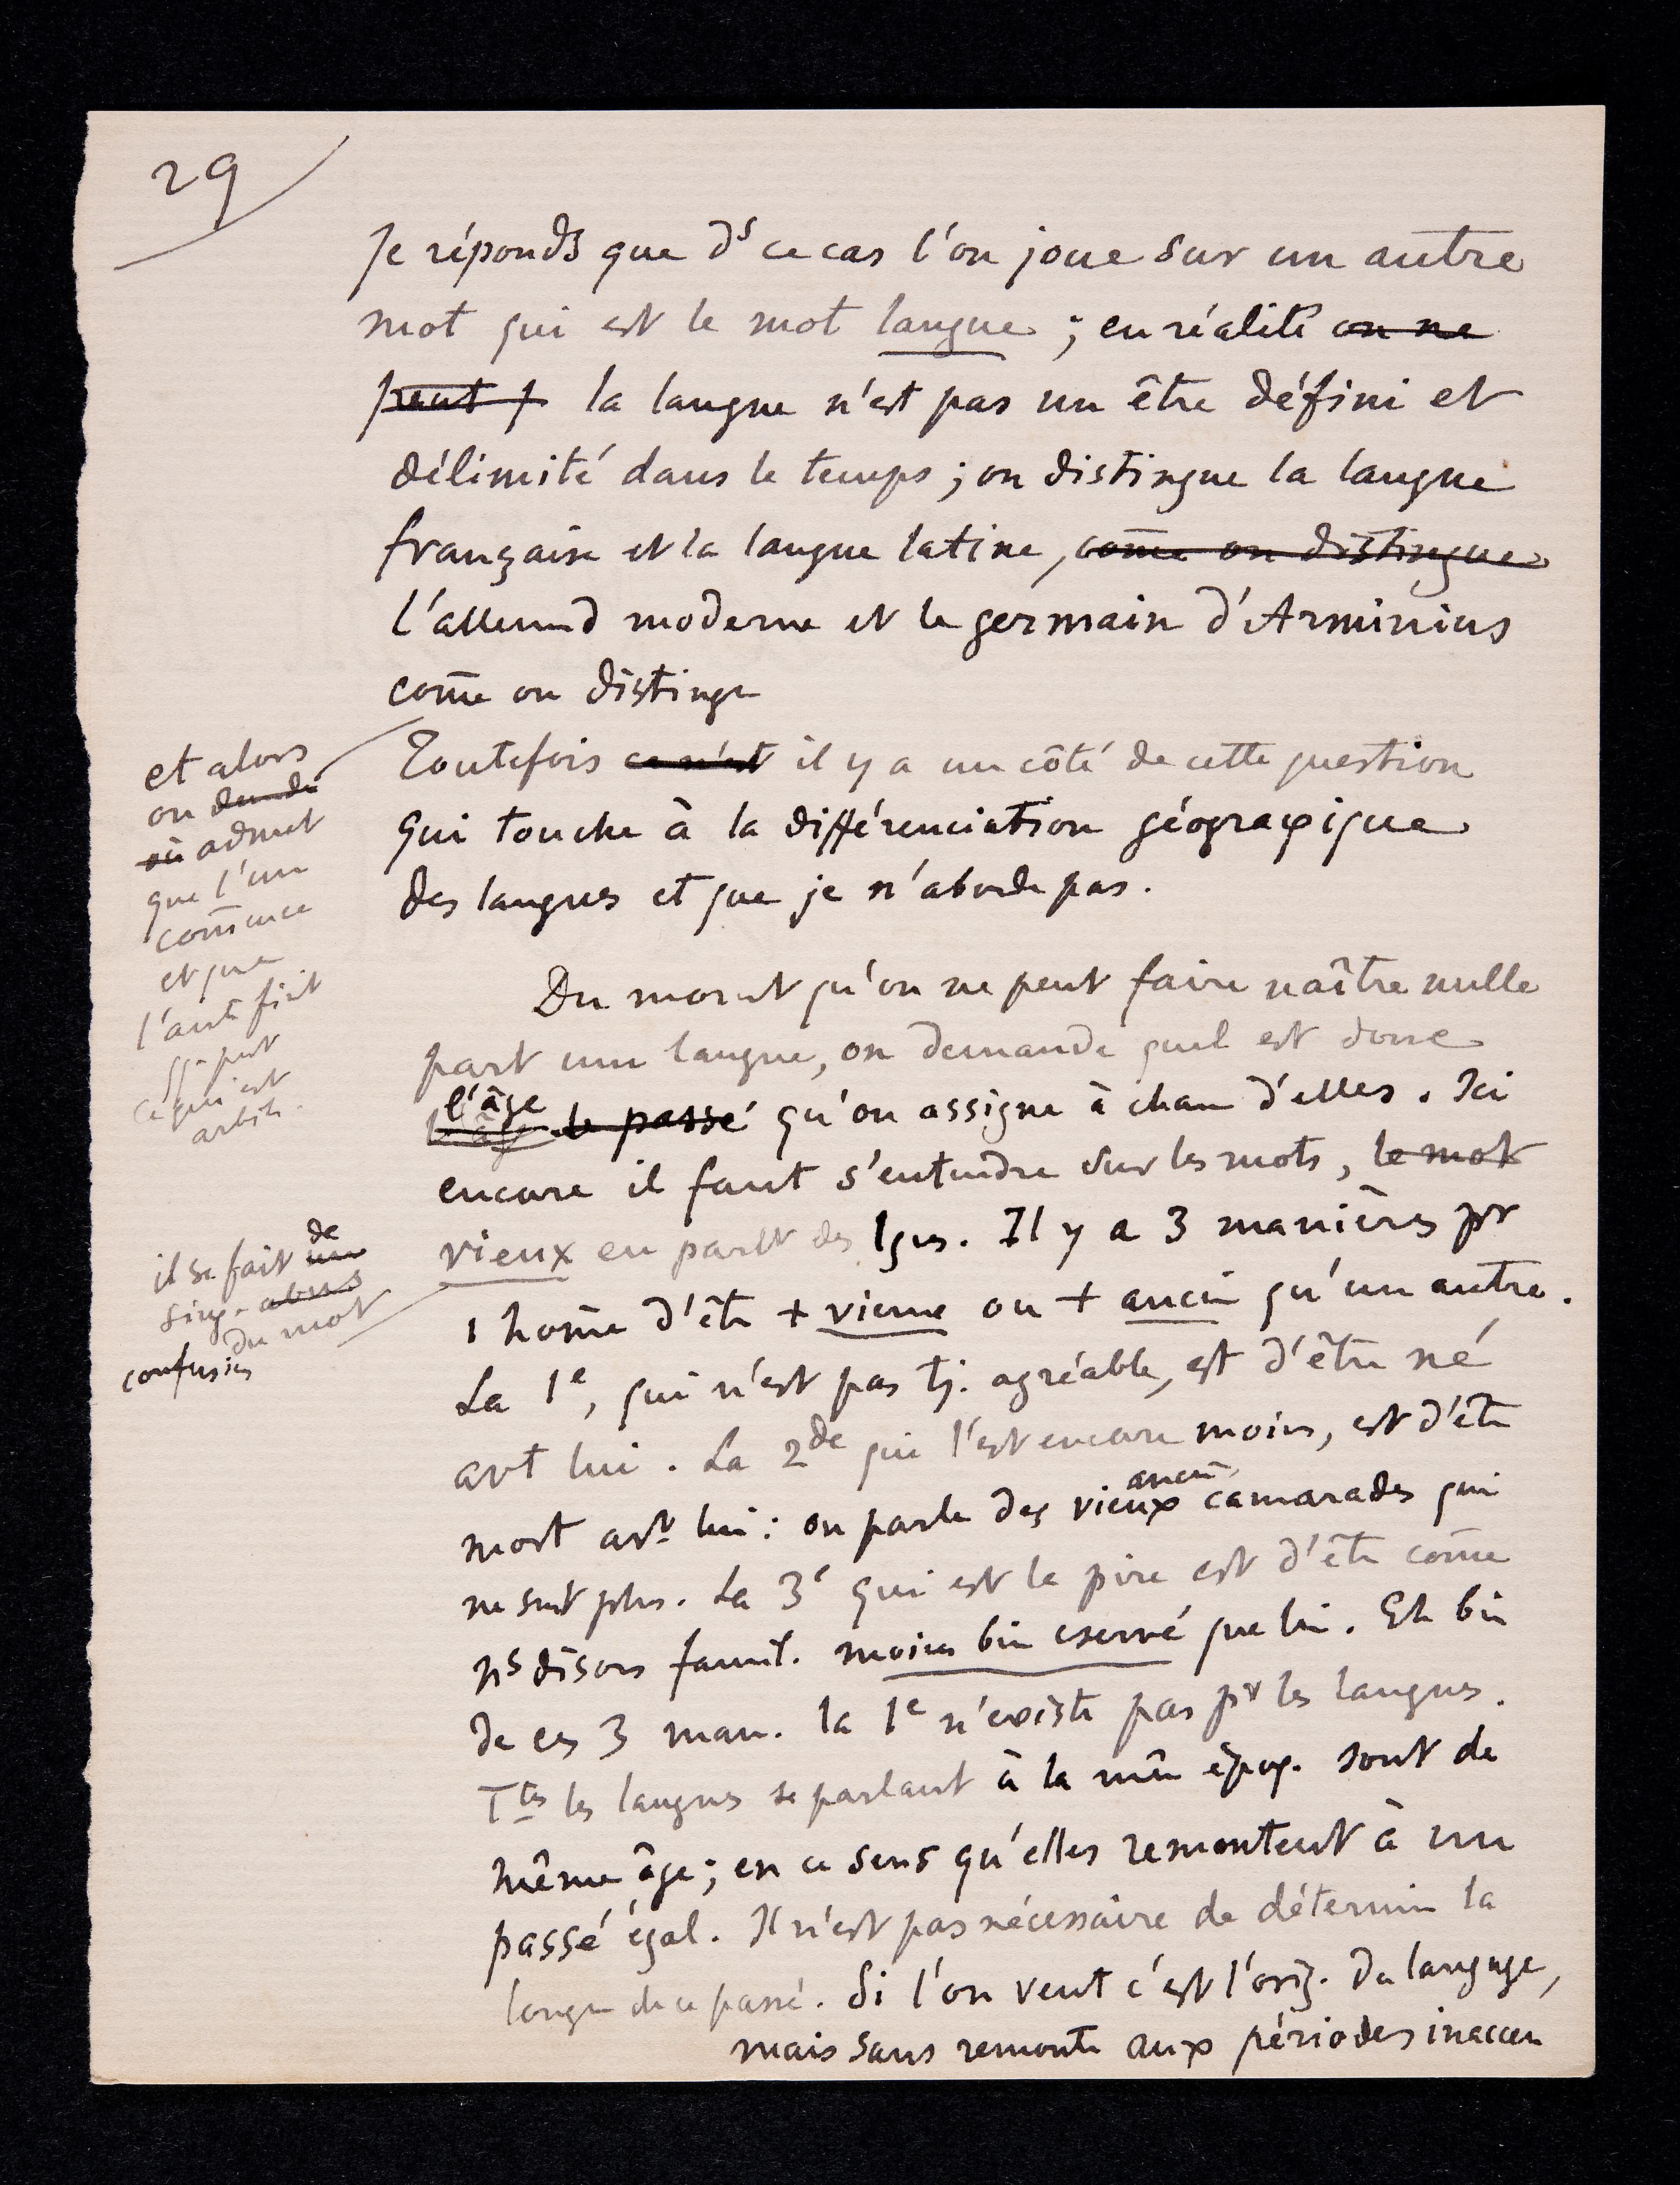 29
Je réponds que ds ce cas l'on joue sur un autre
mot qui est le mot langue ; en réalité on ne
peut p la langue n'est pas un être défini et
délimité dans le temps ; on distingue la langue
française et la langue latine, come on distingue
l'allemd moderne et le germain d'Arminius
come on distingu
et alors
on
où admet
que l'une
comence
et que
l'autre finit
qq. part
ce qui est
arbitr.
Toutefois ce n'est il y a un côté de cette question
qui touche à la différenciation géograφique
des langues et que je n'aborde pas.
Du momt qu'on ne peut faire naître nulle
part une langue, on demande quel est donc
l'âge
l'âge le passé qu'on assigne à chacune d'elles. Ici
encore il faut s'entendre sur les mots, le mot
vieux en parlt des lgues. Il y a 3 manières pr
il se fait de
une
sing. abus
du mot
confusions
1 home d'être + vieux ou + ancien qu'un autre.
La 1e, qui n'est pas tj. agréable, est d'être né
avt lui. La 2de qui l'est encore moins, est d'être
ancien
mort avt lui : on parle des vieux camarades qui
ne sont plus. La 3e qui est la pire est d'être come
ns disons famil. moins bien cservé que lui. Eh bien
de ces 3 man. la 1e n'existe pas pr les langues.
Ttes les langues se parlant à la même époq. sont de
même âge ; en ce sens qu'elles remontent à un
passé égal. Il n'est pas nécessaire de détermin la
longr de ce passé. Si l'on veut c'est l'orig. du langage,
mais sans remonter aux périodes inacces